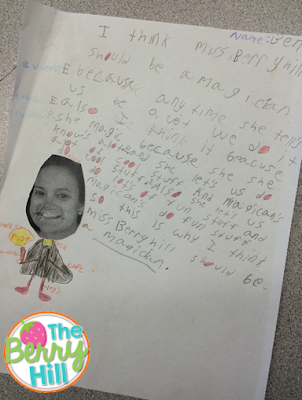 name: Ben
I think miss Berryhill
should be a magician
E. because any time she tells
us be a vet we do it
E also I think it beacuse
she magic because she she
knows a lot and she let's us do
a lot of cool stuff. And magican's
do cool stuff. Also she let's us
do lots of fun stuff and
magicans do fun stuff.
so this is why I think
miss Berryhill should be
a magician.
The
Berry
Hill